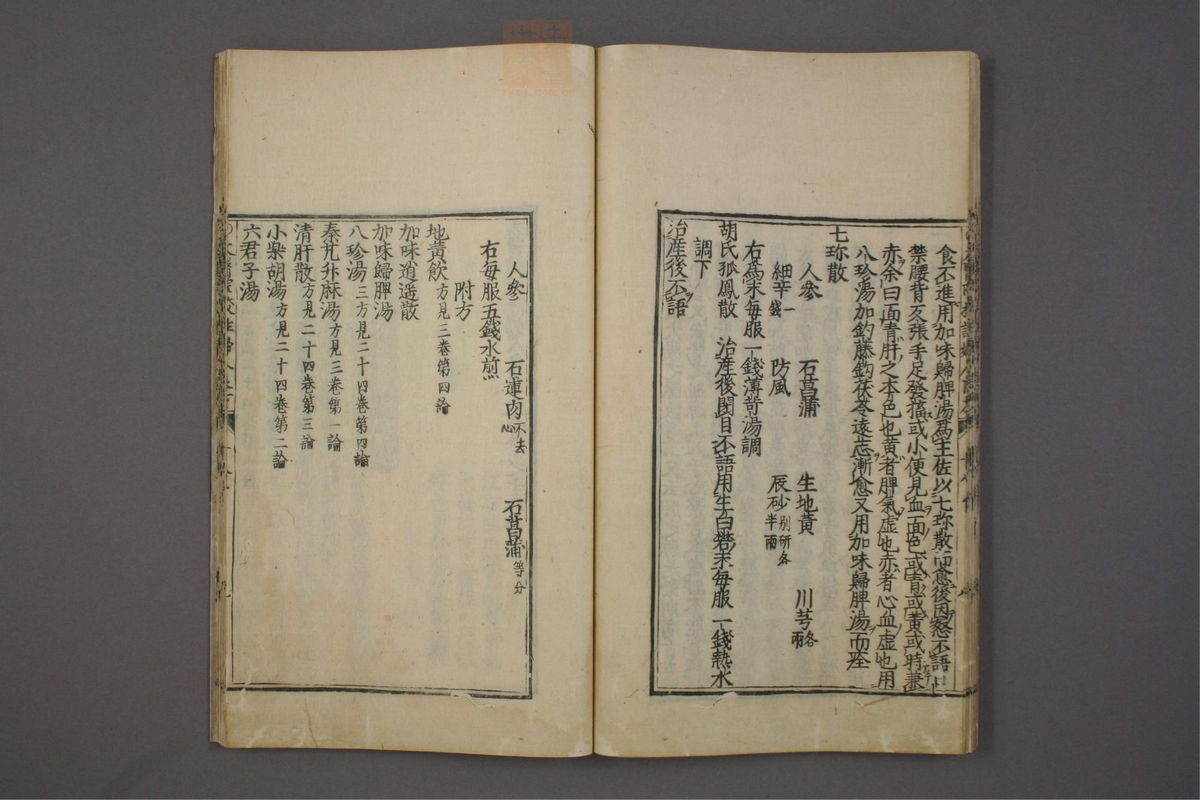 食不進用加味歸脾湯爲主佐以七珎散而愈後因怒不語口
禁腰背反張手足發搐或小便見血面色或青或黄或時兼
赤余曰面青肝之本色也黄者脾氣虚也赤者心血虚也用
八珍湯加釣藤鈎茯苓遠志漸愈又用加味歸脾湯而痊
七珎散
人參 石菖蒲 生地黄 川芎各一兩
細辛一錢 防風 辰砂别研各半兩
右爲末每服一錢薄荷湯調
胡氏孤鳳散 治産後閉目不語用生白礬末每服一錢熱水
調下
治産後不語
人參 石蓮肉不去心 石菖蒲等分
右每服五錢水煎
附方
地黄飲方見三卷第四論
加味逍遥散
加味歸脾湯
八珍湯三方見二十四卷第四論
秦艽升麻湯方見三卷第一論
清肝散方見二十四卷第三論
小柴胡湯方見二十四卷第二論
六君子湯